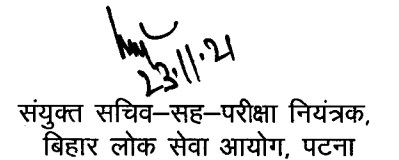 23.11.21
संयुक्त सचिव–सह–परीक्षा नियंत्रक,
बिहार लोक सेवा आयोग, पटना